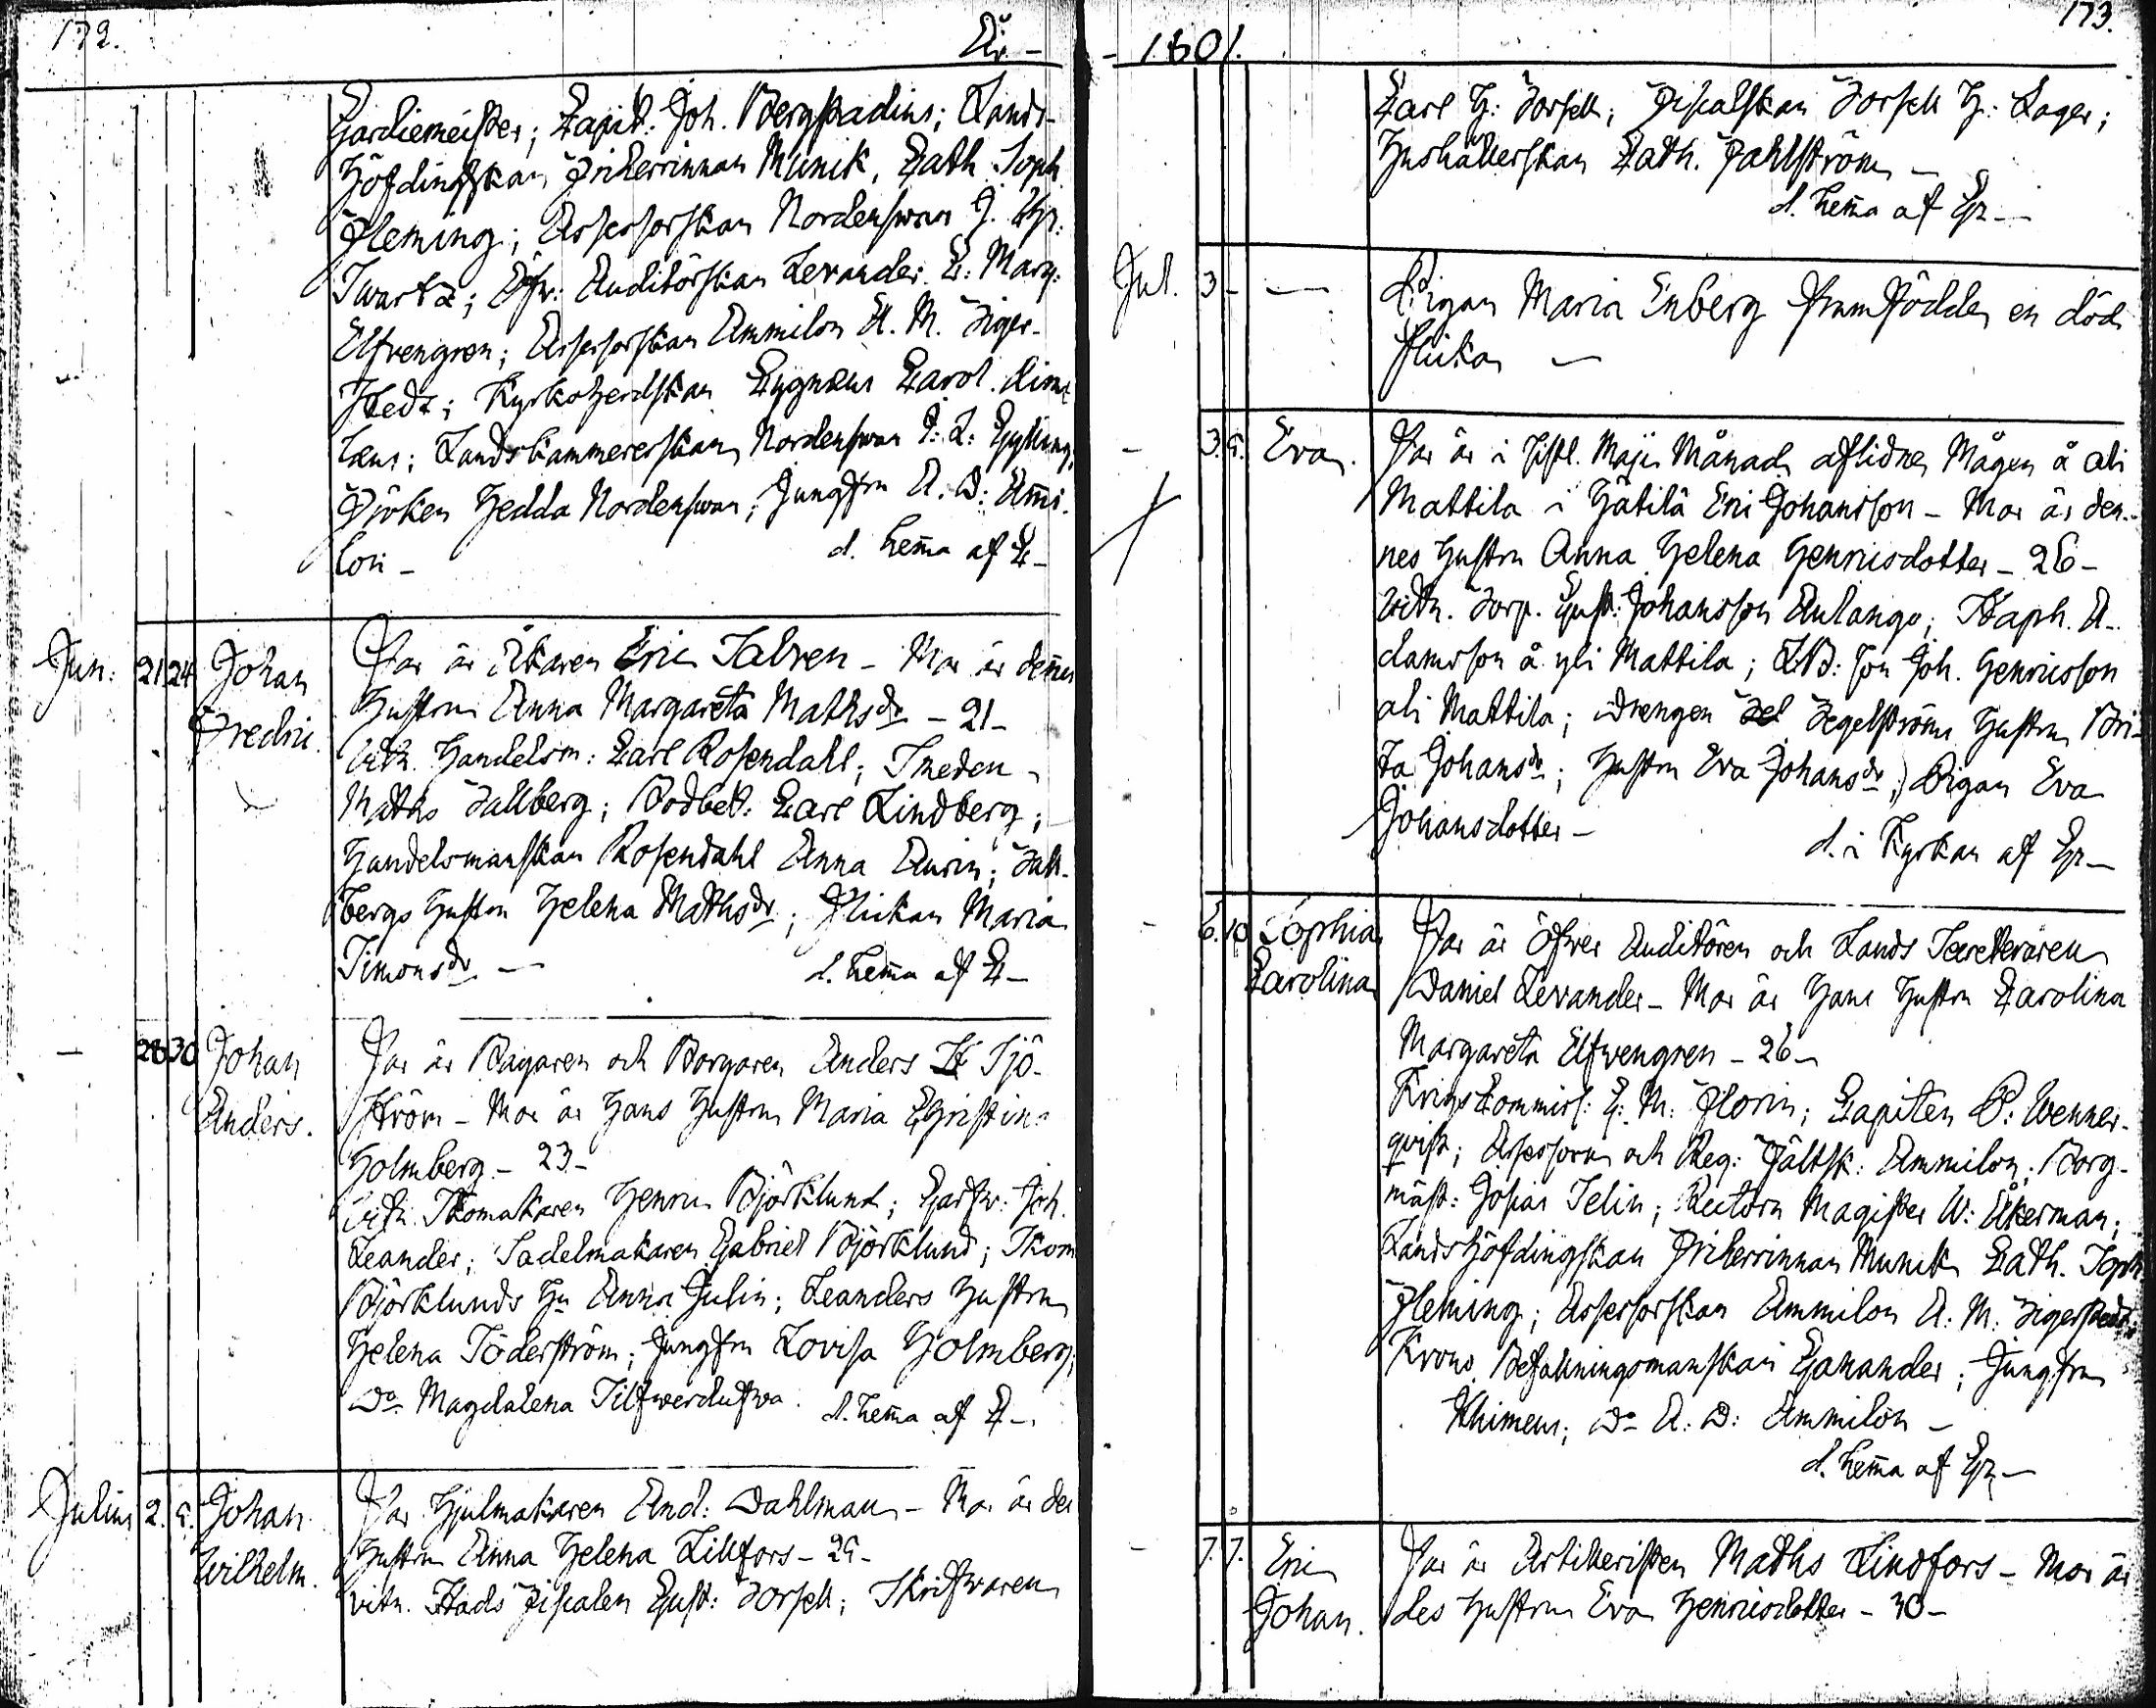 172.
År -
Gardiemeister; Capit: Joh. Bergstadius; Lands-
Höfdingskan Friherrinnan Munck, Cath. Soph.
Fleming; Assessorskan Nordenswan J.
Swartz; Öfw: Auditörskan Levander C: Marg:
Elfvengren; Assessorskan Ammilon A. M. Tiger-
stedt; Kyrkoherdskan Cygnæus Carol.
læus; Landskammererskan Nordenswan Gylling,
Fröken Hedda Nordenswan; Jungfru A. D: Ammi-
lon -
d. hem̃a af
Jun: 21 24 Johan
Fredric.
Far är Åkaren Eric Salvén - Mor är dennes
Hustru Anna Margareta Mathsdr - 21 -
vitn. Handelsm: Carl Rosendahl; Smeden
Maths Tallberg; Bodbet: Carl Lindberg;
Handelsmanskan Rosendahl Anna Aurin; Tall-
bergs Hustru Helena Mathsdr; Flickan Maria
Simonsdr -
d. hem̃a af
- 28 30 Johan
Anders.
Far är Bagaren och Borgaren Anders Sjö-
ström - Mor är Hans Hustru Maria Christina
Holmberg - 23 -
vitn. Skomakaren Henric Björklund; Garfw: Joh.
Leander; Sadelmakaren Gabriel Björklund; Skom
Björklunds Hu Anna Julin; Leanders Hustru
Helena Söderström; Jungfru Lovisa Holmberg;
Do Magdalena Silfwerdufwa.
d. hem̃a af
Julius 2. 5. Johan
Wilhelm.
Far Hjulmakaren And: Dahlman - Mor är des
Hustru Anna Helena Lillfors - 25 -
vitn. Stads Fiscalen Gust: Forsell; Skrifwaren
- 1801.
173.
Carl H: Forsell; Fiscalskan Forsell H: Lager;
Hushållerskan Cath. Fahlström -
d. hem̃a af
Jul. 3 - -
Pigan Maria Enberg framfödde en död
flicka -
- 3. 5. Eva.
Far är i sistl. Maji Månad aflidne Mågen å ali
Mattila i Hätilä Eric Johansson - Mor är den-
nes Hustru Anna Helena Henricsdotter - 26 -
vitn. Torp. Gust: Johansson Aulango; Staph. A-
damsson å yli Mattila; LB: son Joh. Henricsson
ali Mattila; Drengen Tegelströms Hustru Bri-
ta Johansdr; Hustru Eva Johansdr; Pigan Eva
Johansdotter -
d. i Kyrkan af
- 6. 10 Sophia
Carolina
Far är Öfwer Auditören och Lands Secreteraren
Daniel Levander - Mor är Hans Hustru Carolina
Margareta Elfwengren - 26 -
KrigsCommis: E: M: Florin; Capiten P: Wenner-
qvist; Assessorn och Reg: Fältsk: Ammilon; Borg-
mäst: Josias Selin; Rectorn Magister W: Åkerman;
LandsHöfdingskan Friherrinnan Munck Cath. Soph
Fleming; Assessorskan Ammilon A: M: Tigerstedt;
Krono Befallningsmanskan Ganander; Jungfru
Do A: D: Ammilon -
d. hem̃a af
- 7. 7. Eric
Johan.
Far är Artilleristen Maths Lindfors - Mor är
des Hustru Eva Henricsdotter - 30 -